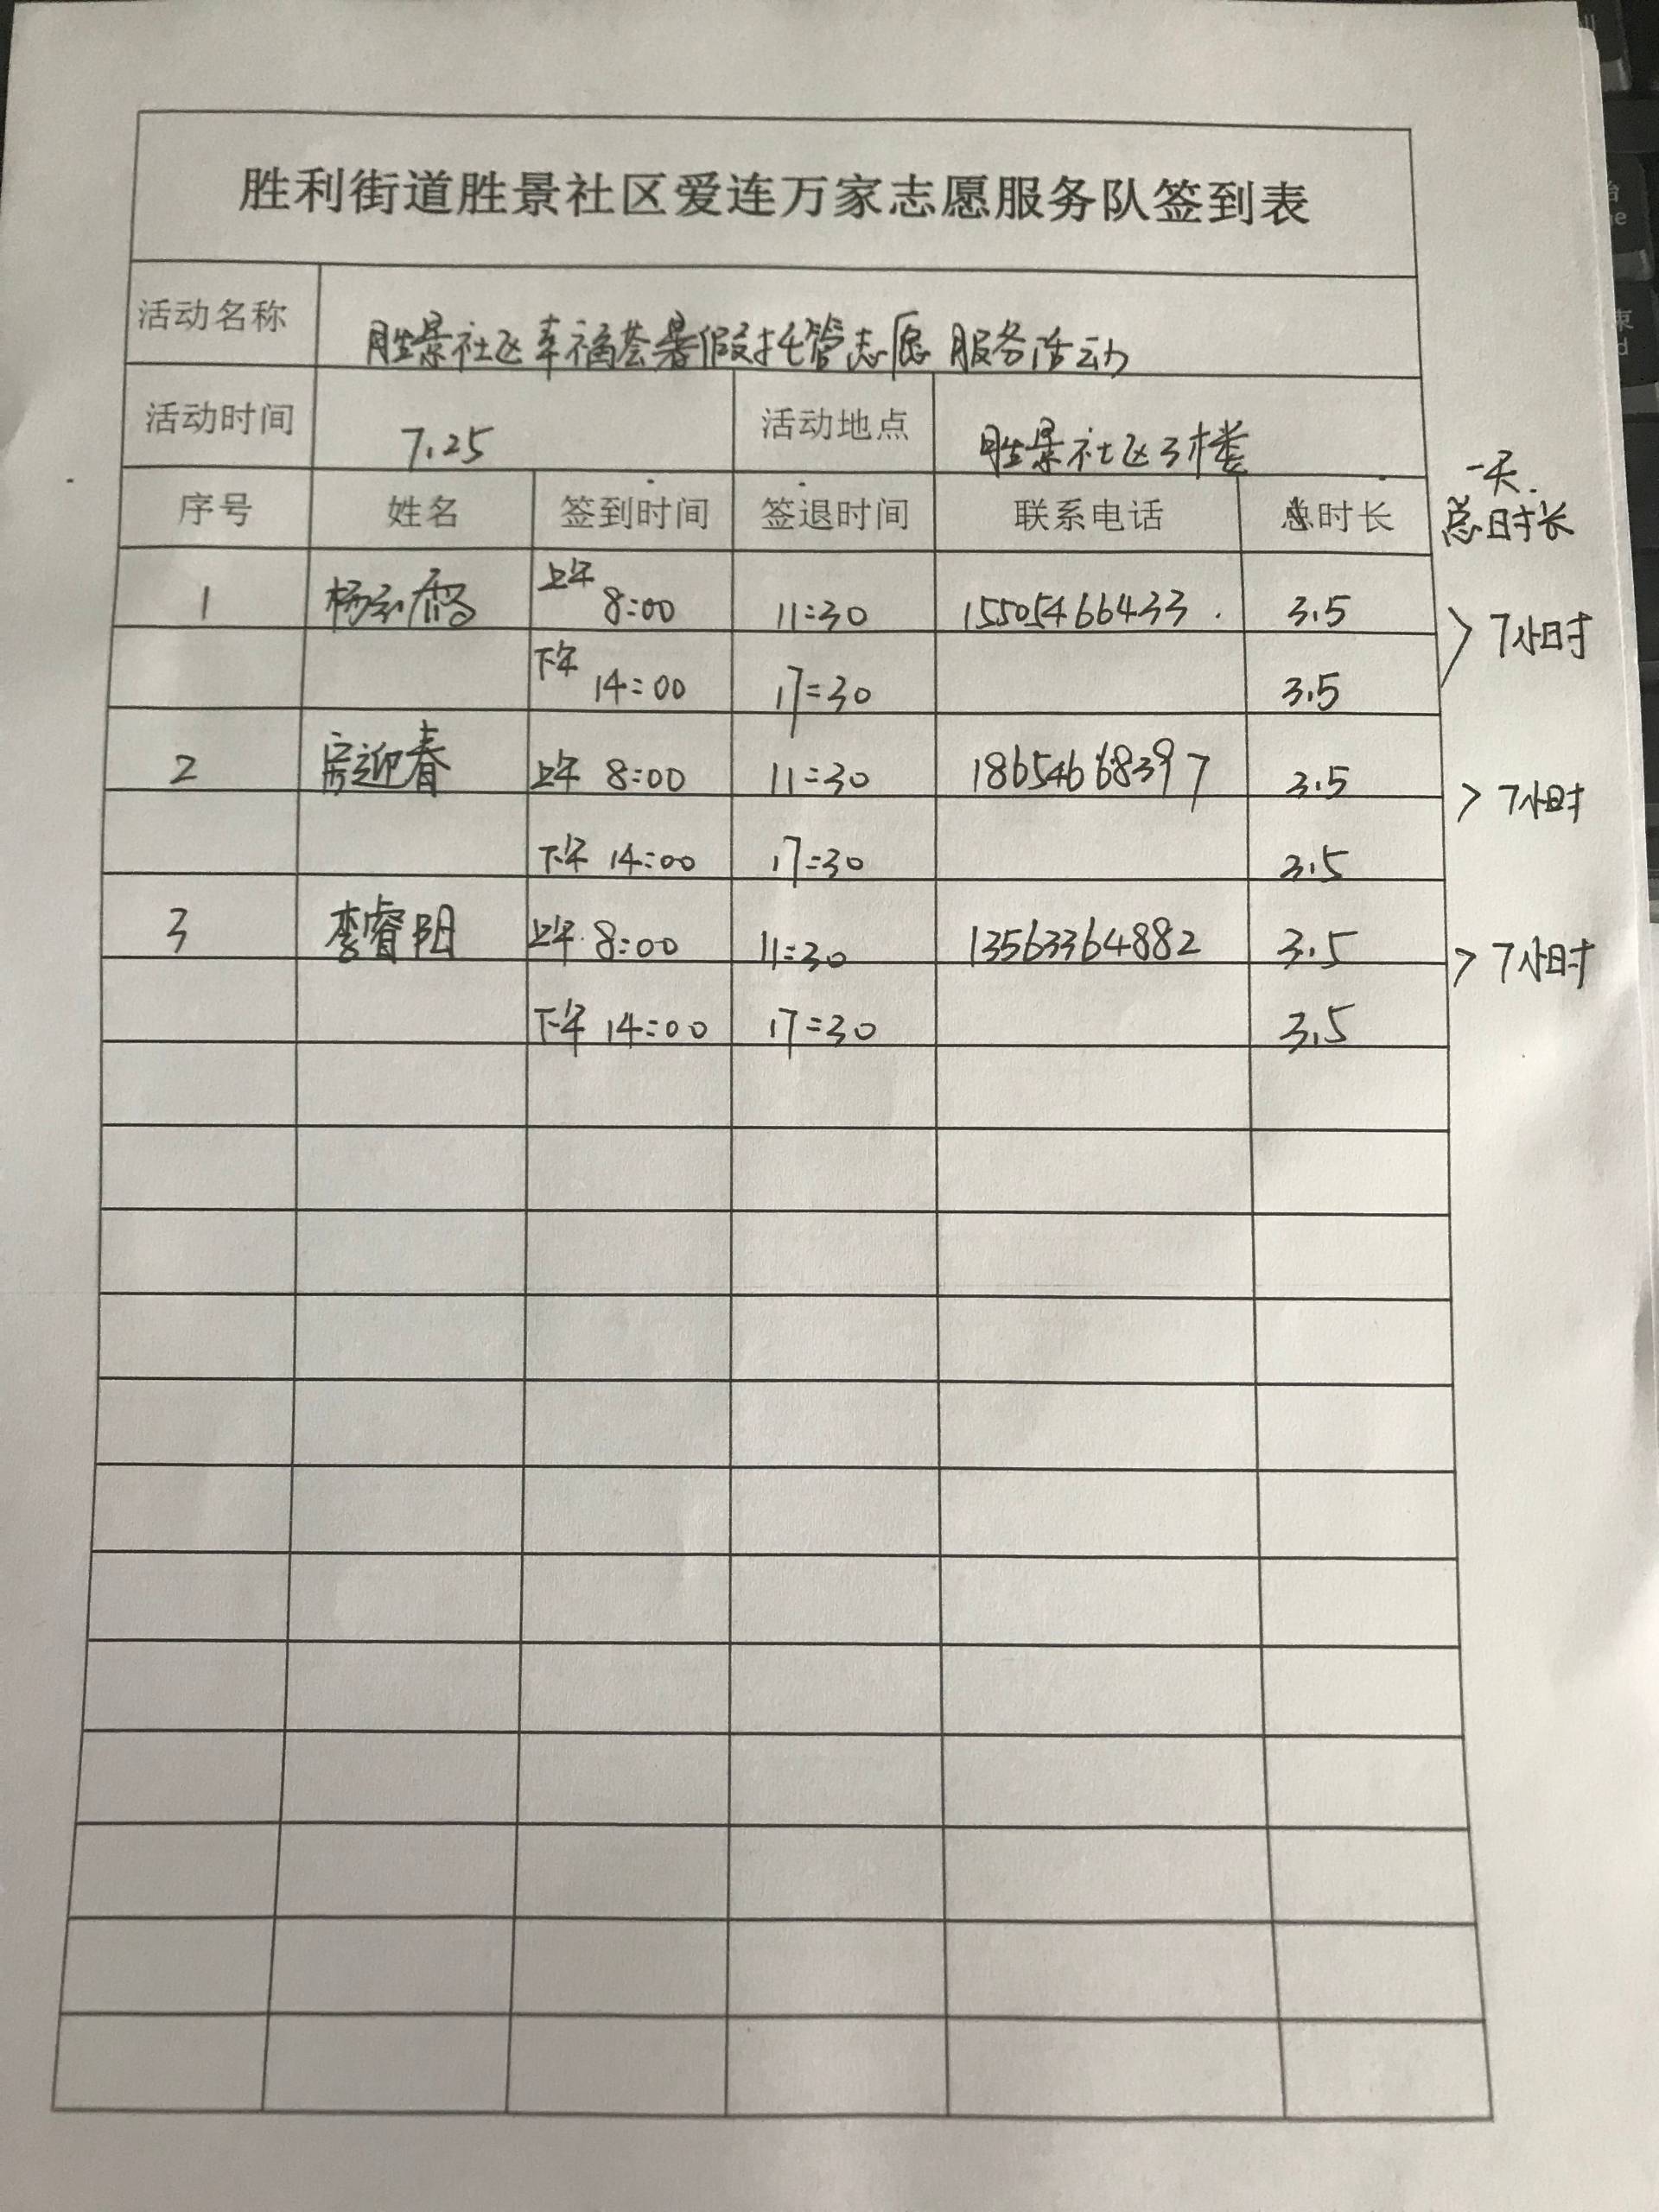 胜利街道胜景社区爱连万家志愿服务队签到表
活动名称 胜景社区幸福荟暑假托管志愿服务活动
活动时间 7.25 活动地点 胜景社区3楼
一天
序号 姓名 签到时间 签退时间 联系电话 总时长 总时长
1 杨 上午 8:00 11:30 15505466433 3.5
下午 14:00 17:30 3.5
> 7小时
2 房迎春 上午 8:00 11:30 18654668397 3.5
下午 14:00 17:30 3.5
> 7小时
3 李睿阳 上午 8:00 11:30 13563364882 3.5
下午 14:00 17:30 3.5
> 7小时